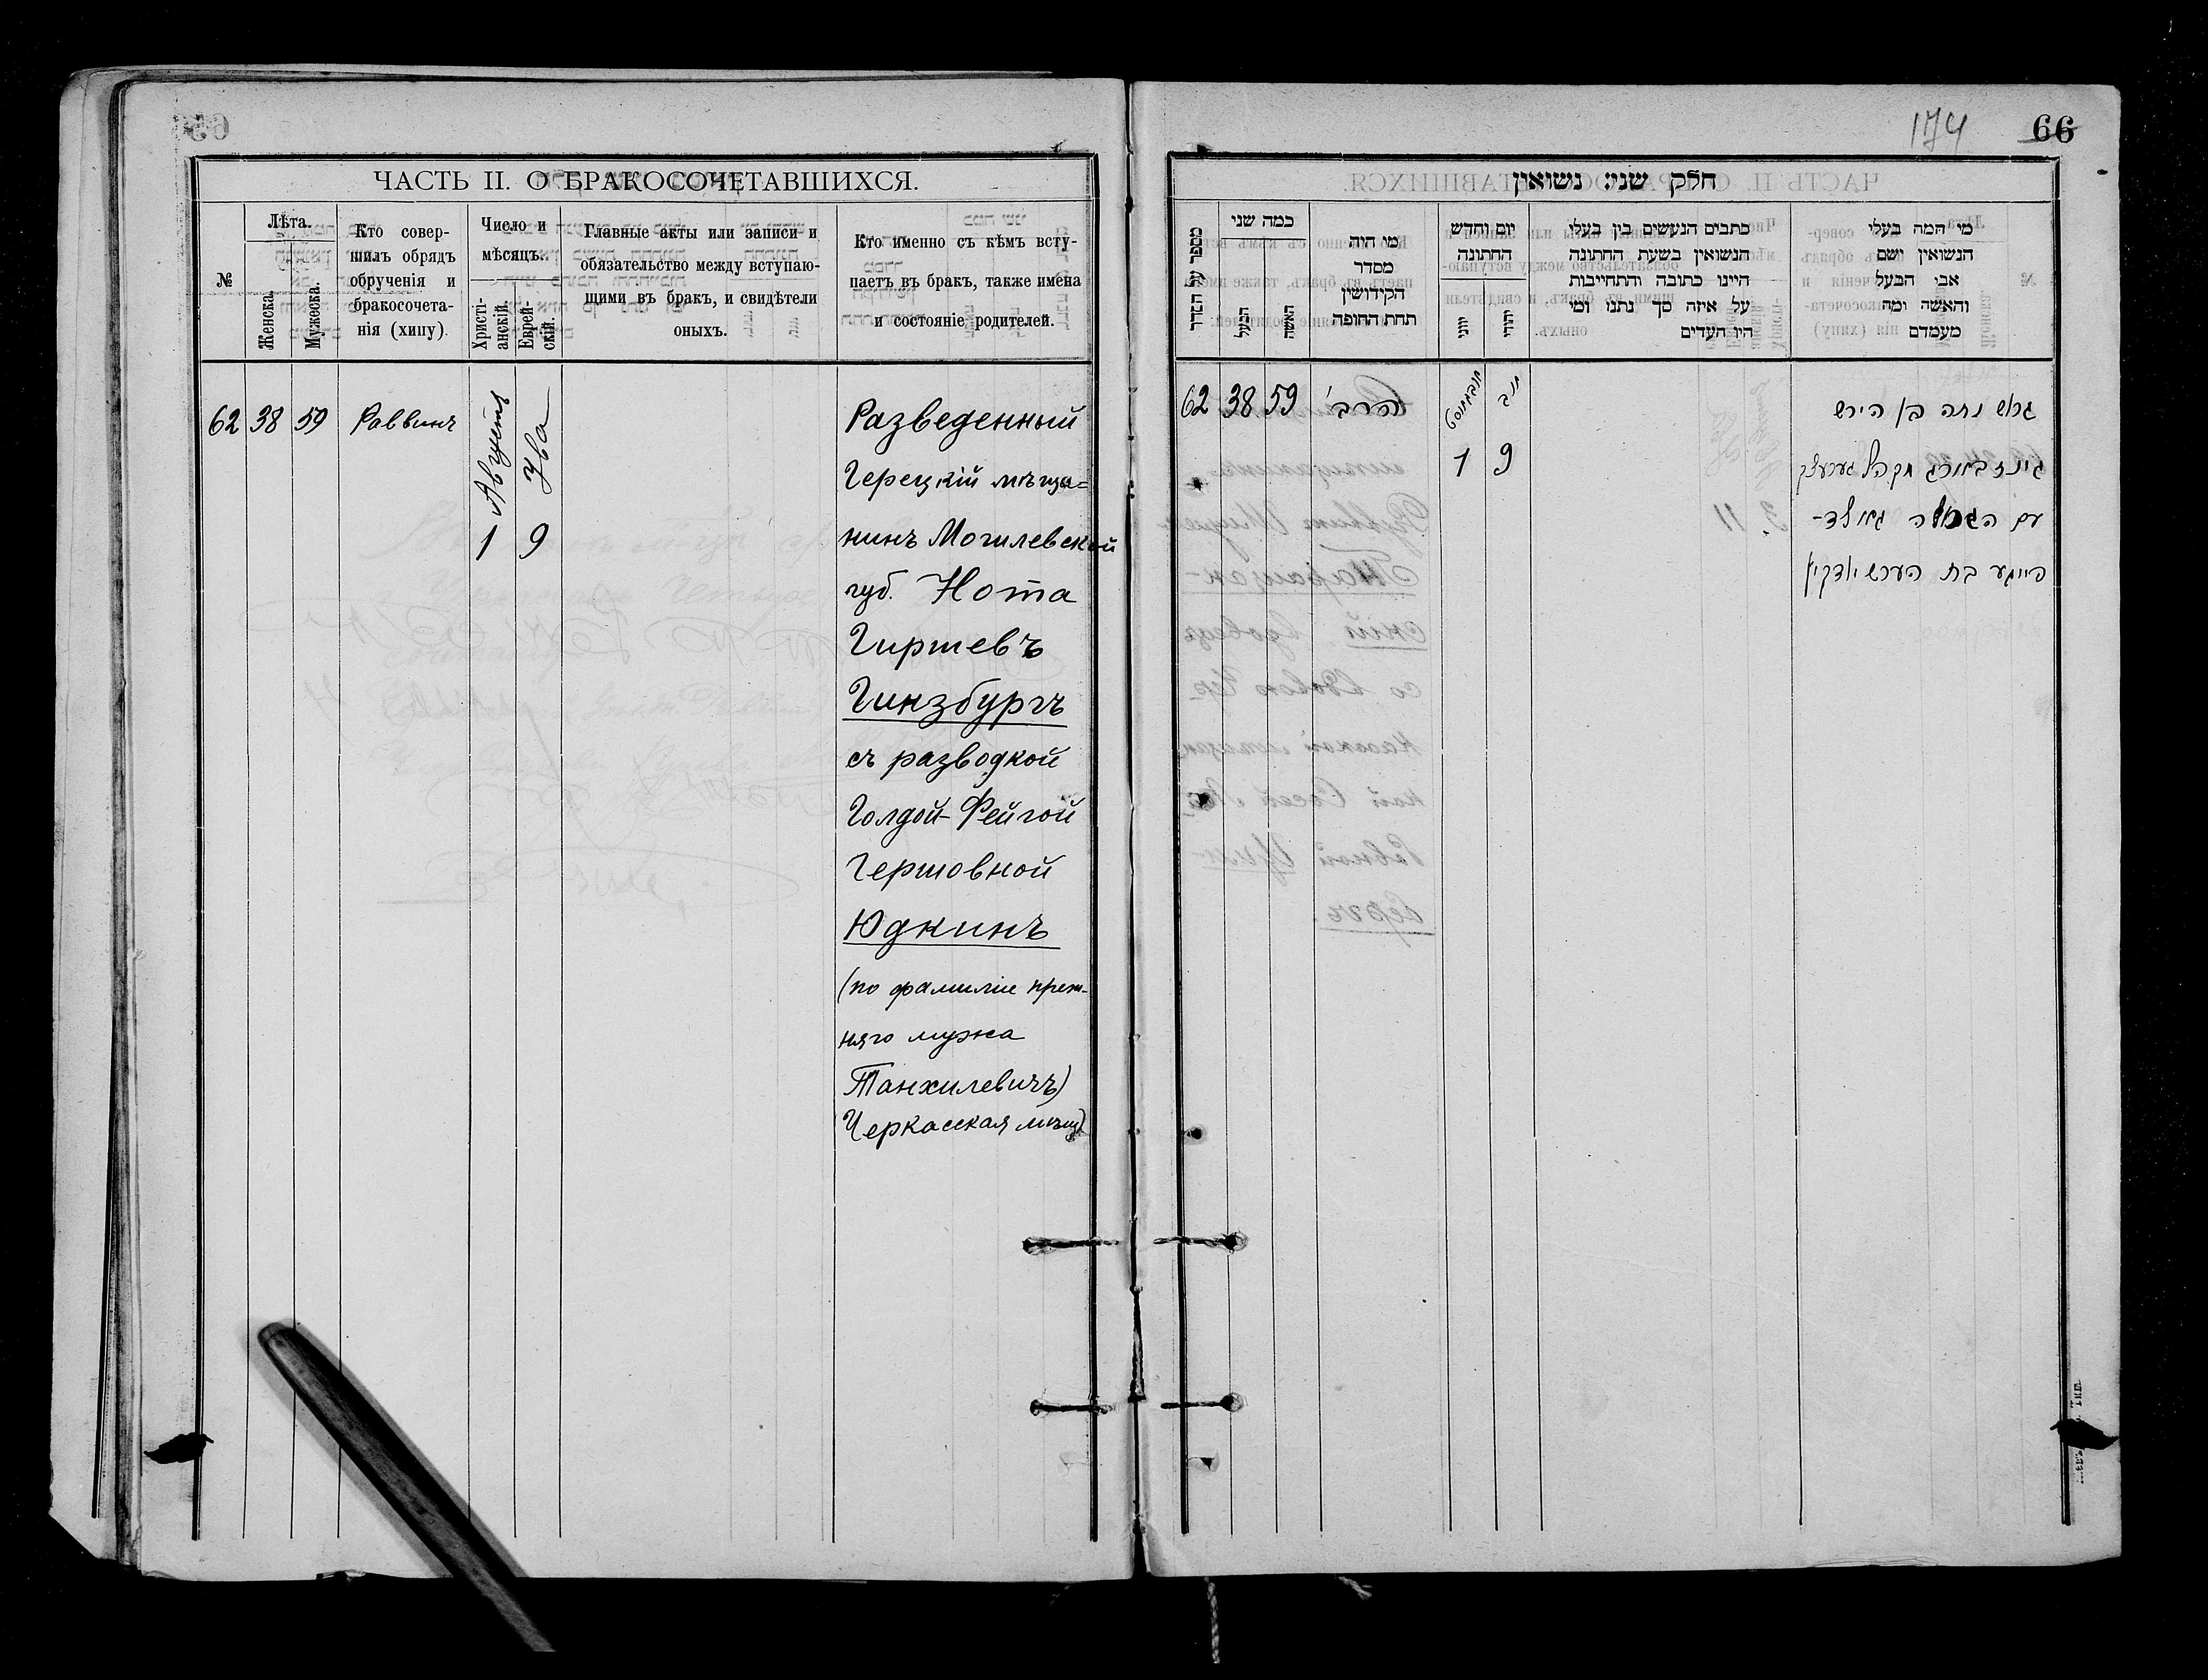 ЧАСТЬ II. О БРАКОСОЧЕТАВШИХСЯ.
№
Лѣта.
Женска.
Мужеска.
Кто совер-
шилъ обрядъ
обрученія и
бракосочета-
нія (хипу).
Число и
мѣсяцъ.
Христі-
анскій.
Еврей-
скій.
Главные акты или записи и
обязательство между вступаю-
щими въ бракъ, и свидѣтели
оныхъ.
Кто именно съ кѣмъ всту-
паетъ въ бракъ, также имена
и состояніе родителей.
62 38 59 Раввинъ
Августъ Ува
1 9
Разведенный
Герецкій мѣща=
нинъ Могилевской
губ. Нота
Гиршевъ
Гинзбургъ
съ разводкой
Голдой-Фейгой
Гершовной
Юдкинъ
(по фамиліи преж-
няго мужа
Танхилевичъ)
Черкасская мѣщ)
174 66
חלק שני: נשואין
מספר על הסדר
כמה שני
הבעל
האשה
מי היה
מסדר
הקידושין
תחת החופה
יום וחדש
החתונה
יווני
יהודי
כתבים הנעשים בין בעלי
הנשואין בשעת החתונה
היינו כתובה והתחייבות
על איזה סך נתנו ומי
היו העדים
מי המה בעלי
הנשואין ושם
אבי הבעל
והאשה ומה
מעמדם
62 38 59 הרב'
אוגוסט אב
1 9
גרוש נטה בן הירש
גינזבורג מקהל געריעצק
עם הגרושה גאלד-
פייגע בת הערש יודקין